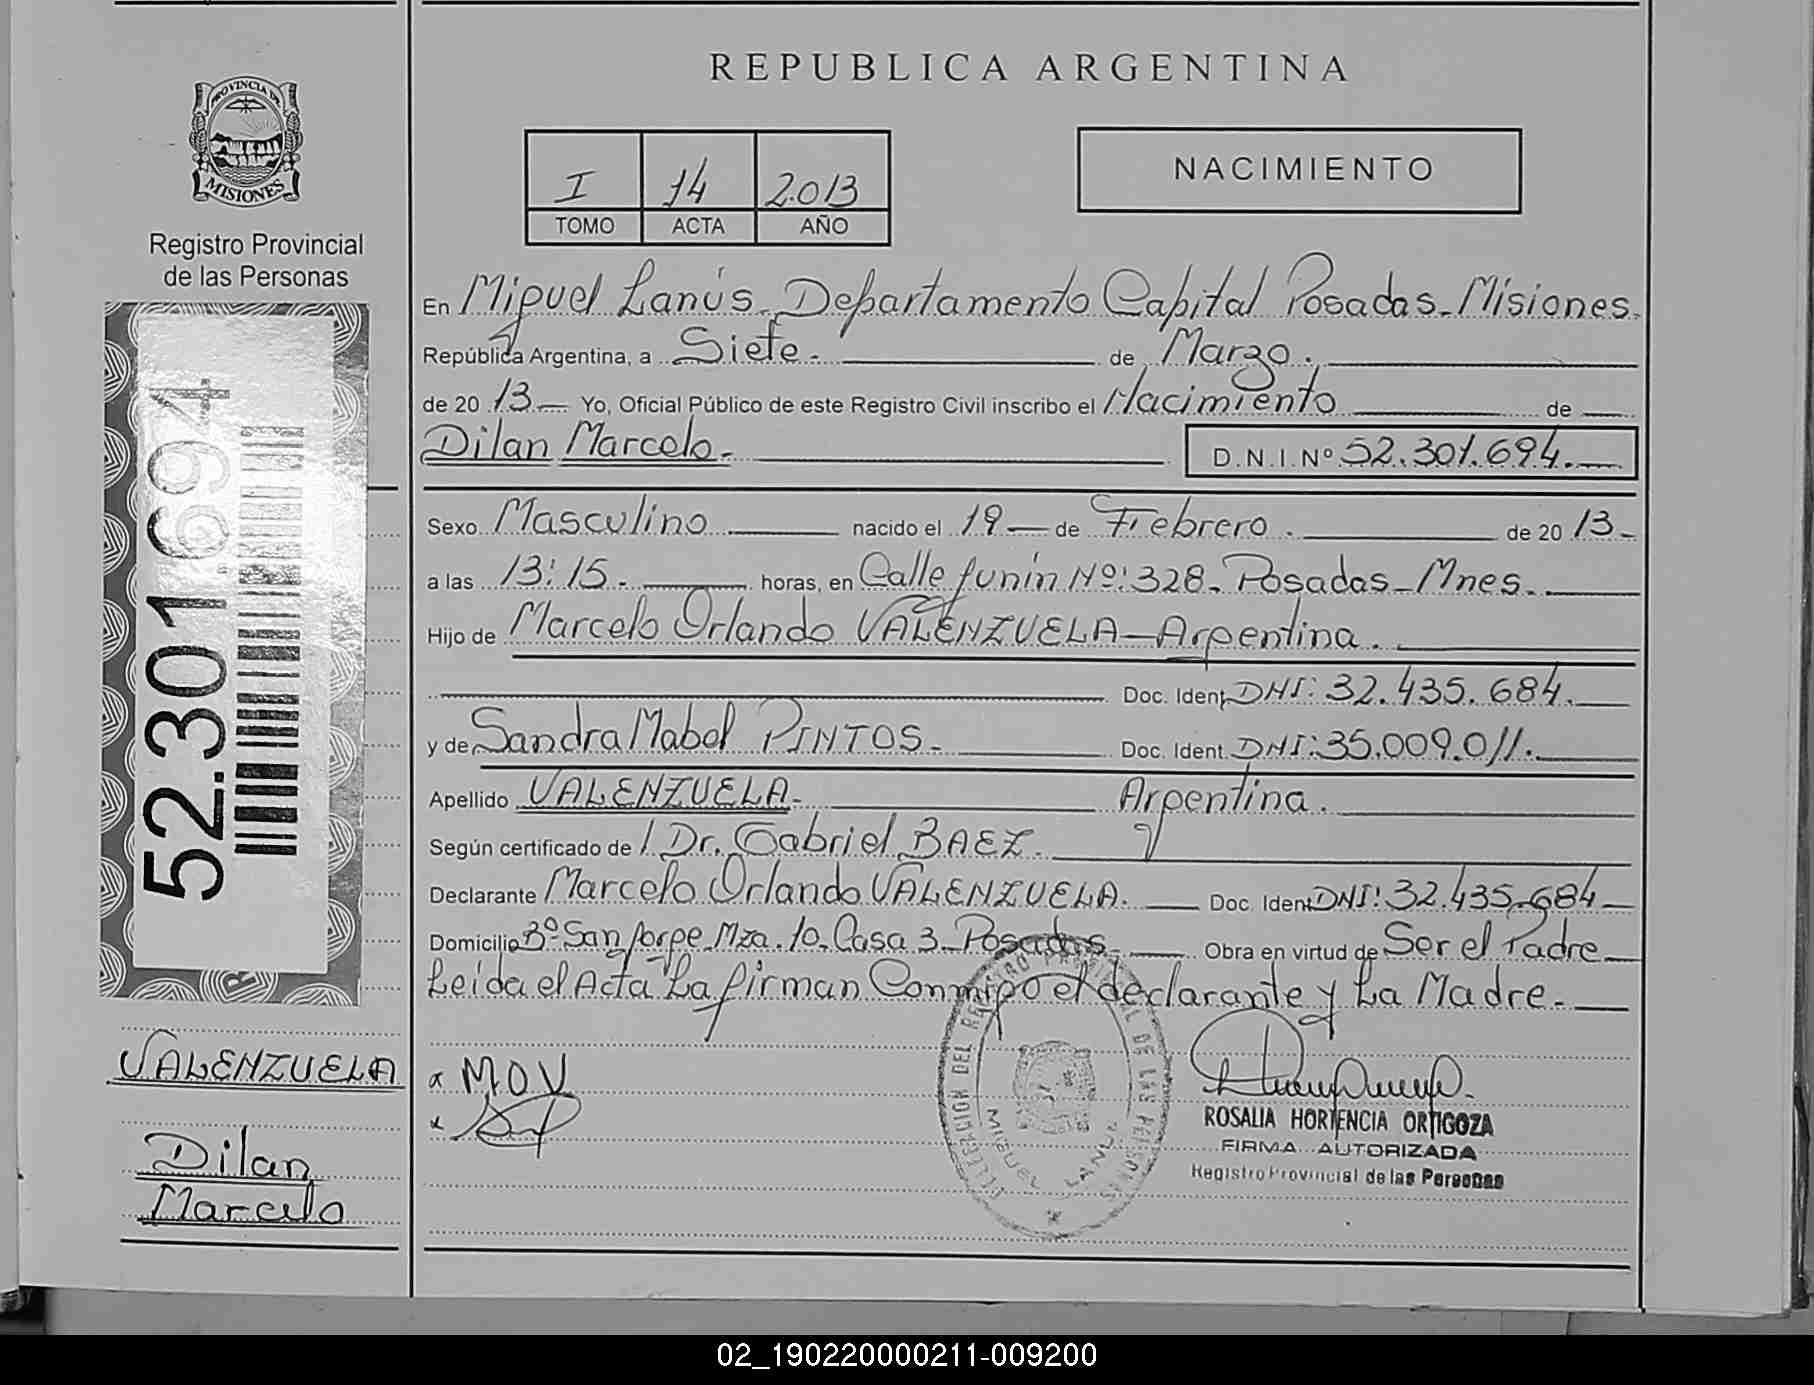 REPUBLICA ARGENTINA
PROVINCIA DE
MISIONES
Registro Provincial
de las Personas
I 14 2.013
TOMO ACTA AÑO
NACIMIENTO
En Miguel Lanús. Departamento Capital Posadas. Misiones.
República Argentina, a Siete. de Marzo.
de 20 13 Yo, Oficial Público de este Registro Civil inscribo el Nacimiento de
Dilan Marcelo. D.N.I.Nº 52.301.694.
Sexo Masculino nacido el 19 de Febrero. de 20 13
a las 13:15. horas, en Calle Junín Nº: 328. Posadas - Mnes.
Hijo de Marcelo Orlando VALENZUELA - Argentina.
Doc. Ident. DNI: 32.435.684.
y de Sandra Mabel PINTOS. Doc. Ident. DNI: 35.009.011.
Apellido VALENZUELA. Argentina.
Según certificado de / Dr. Gabriel BAEZ.
Declarante Marcelo Orlando VALENZUELA. Doc. Ident DNI: 32.435.684
Domicilio Bº San Jorge Mza. 10. Casa 3. Posadas. Obra en virtud de Ser el Padre
Leída el Acta La firman Conmigo el declarante y La Madre.
52.301.694
VALENZUELA
Dilan
Marcelo
x M.O.V
x
DELEGACION DEL REGISTRO PROVINCIAL DE LAS PERSONAS
MIGUEL LANUS
ROSALIA HORTENCIA ORTIGOZA
FIRMA AUTORIZADA
Registro Provincial de las Personas
02_190220000211-009200